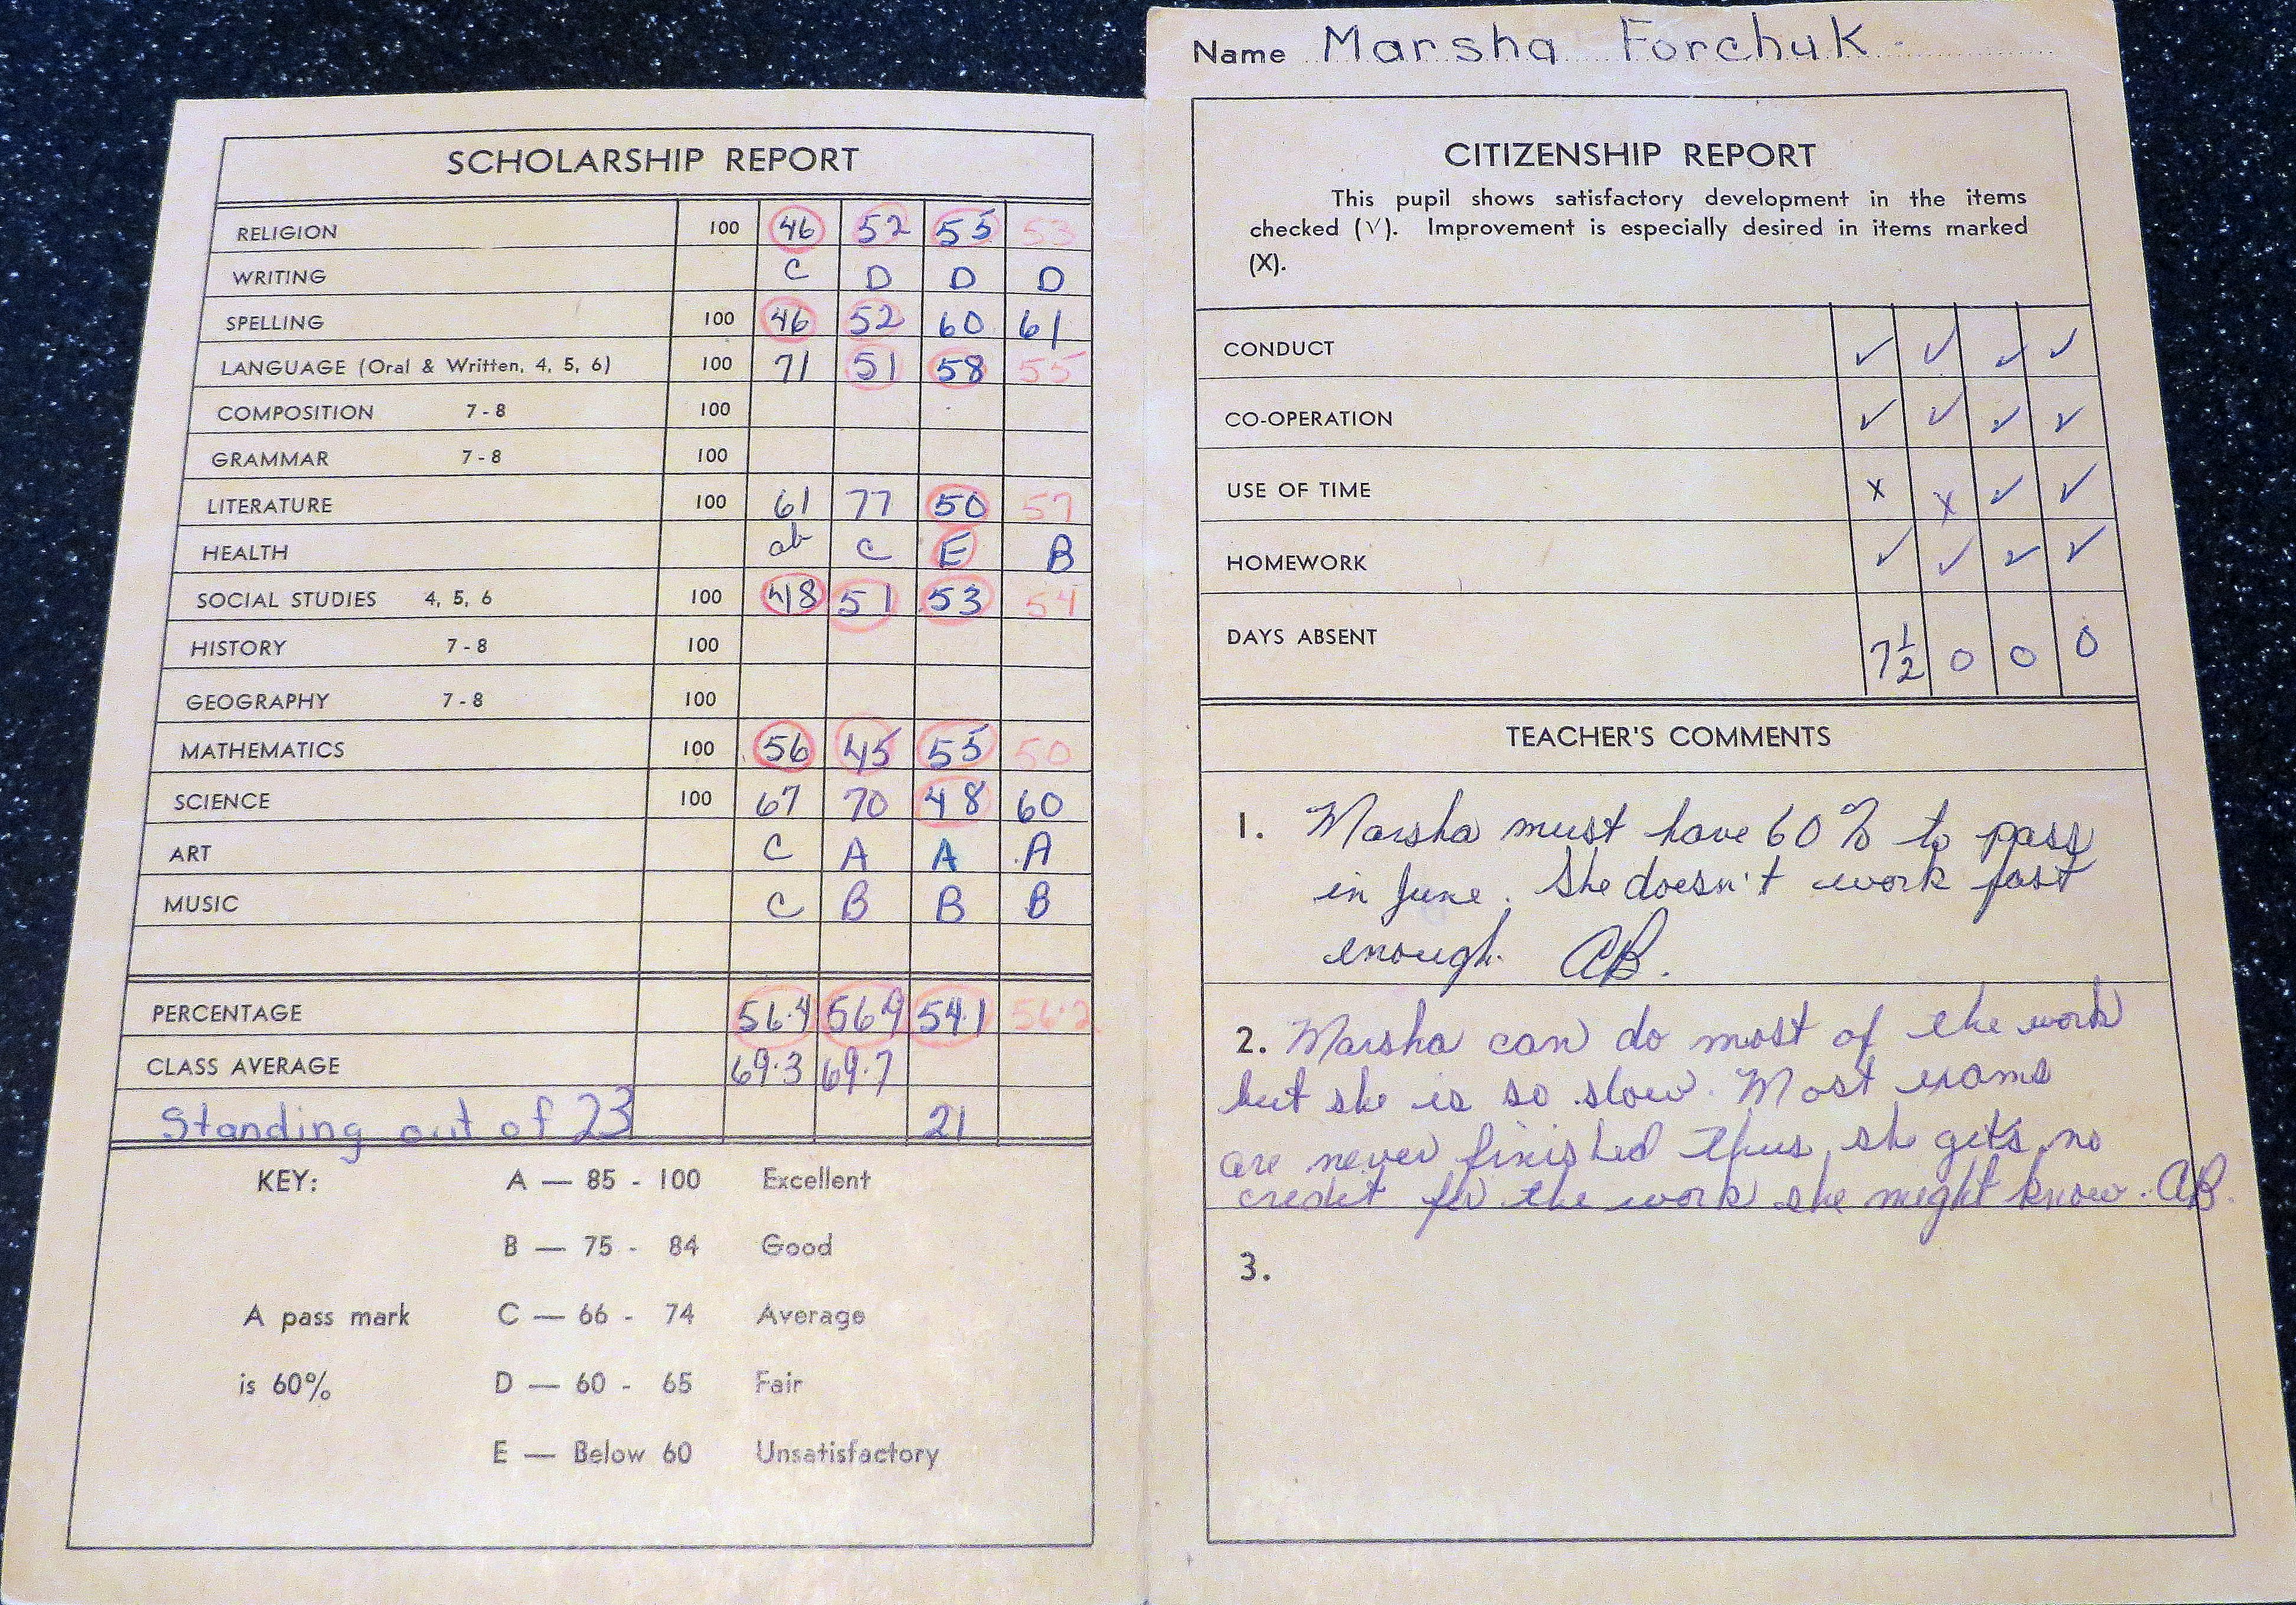 SCHOLARSHIP REPORT
RELIGION 100 46 52 55 53
WRITING C D D D
SPELLING 100 46 52 60 61
LANGUAGE (Oral & Written, 4, 5, 6) 100 71 51 58 55
COMPOSITION 7 - 8 100
GRAMMAR 7 - 8 100
LITERATURE 100 61 77 50 57
HEALTH ab C E B
SOCIAL STUDIES 4, 5, 6 100 48 51 53 54
HISTORY 7 - 8 100
GEOGRAPHY 7 - 8 100
MATHEMATICS 100 56 45 55 50
SCIENCE 100 67 70 48 60
ART C A A A
MUSIC C B B B
PERCENTAGE 56.4 56.9 54.1 56.2
CLASS AVERAGE 69.3 69.7
Standing out of 23 21
KEY: A — 85 - 100 Excellent
B — 75 - 84 Good
A pass mark C — 66 - 74 Average
is 60% D — 60 - 65 Fair
E — Below 60 Unsatisfactory
Name Marsha Forchuk
CITIZENSHIP REPORT
This pupil shows satisfactory development in the items
checked (√). Improvement is especially desired in items marked
(X).
CONDUCT ✓ ✓ ✓ ✓
CO-OPERATION ✓ ✓ ✓ ✓
USE OF TIME X X ✓ ✓
HOMEWORK ✓ ✓ ✓ ✓
DAYS ABSENT 7½ 0 0 0
TEACHER'S COMMENTS
1. Marsha must have 60% to pass
in June. She doesn't work fast
enough. AB.
2. Marsha can do most of the work
but she is so slow. Most exams
are never finished thus she gets no
credit for the work she might know. AB.
3.